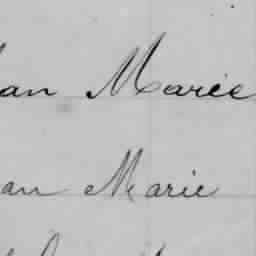 an Marie
an Marie